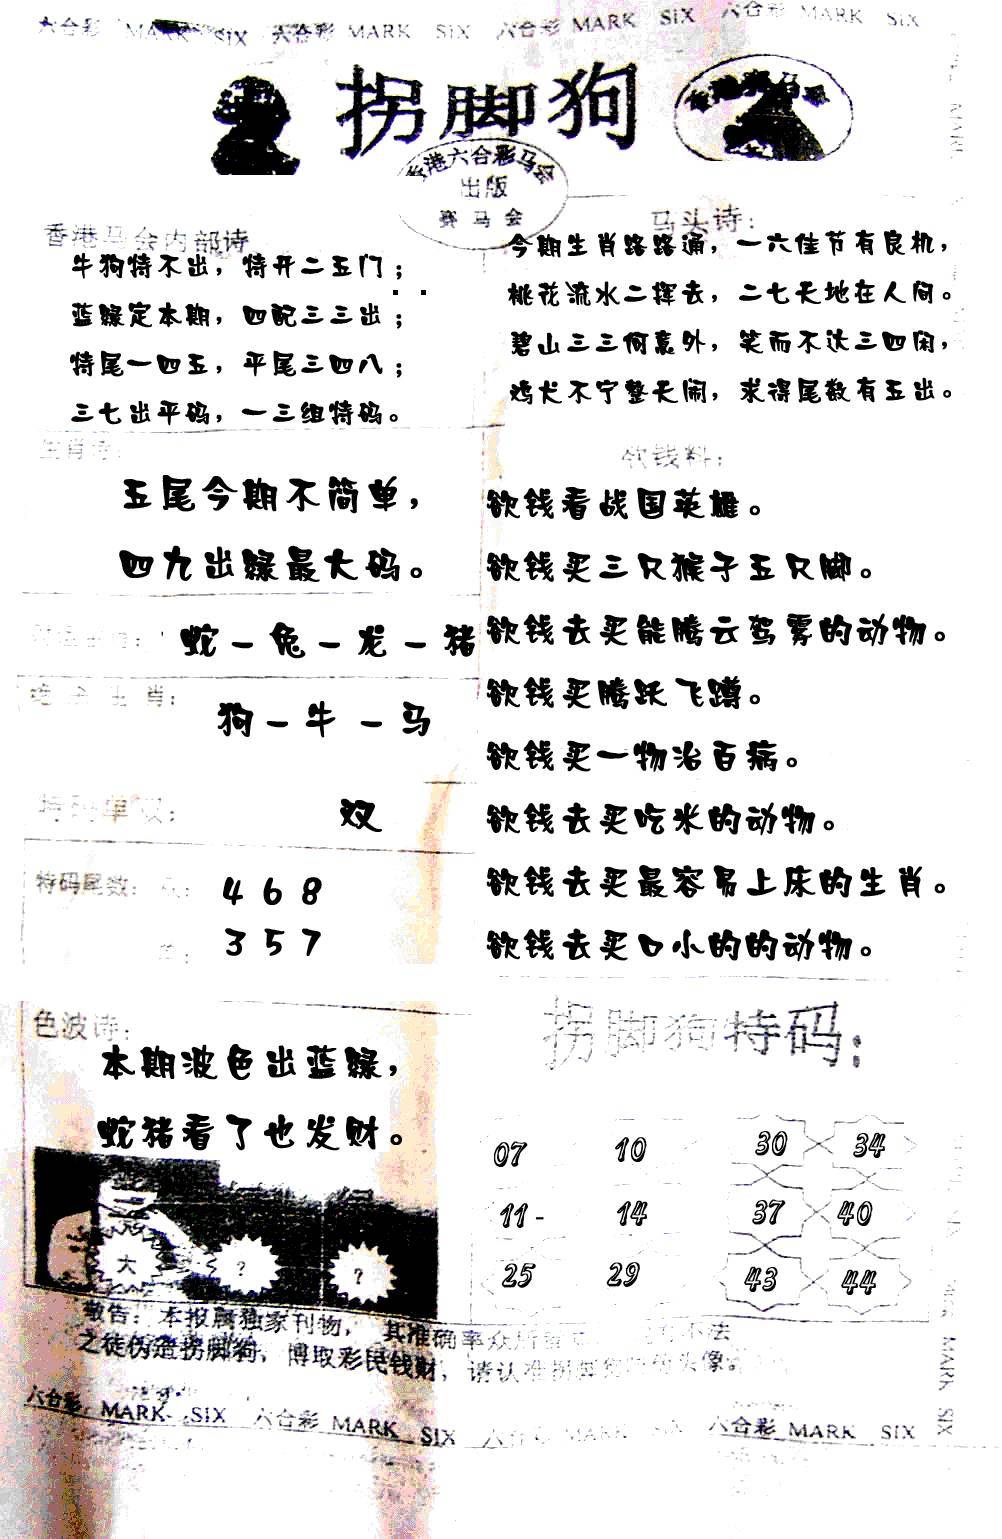 六合彩 MARK SIX 六合彩 MARK SIX 六合彩 MARK SIX 六合彩 MARK SIX
拐脚狗
香港六合彩马会
出版
赛马会
香港马会内部诗
牛狗特不出，特开二五门；
蓝绿定本期，四配三三出；
特尾一四五，平尾三四八；
三七出平码，一三组特码。
马头诗：
今期生肖路路通，一六佳节有良机，
桃花流水二挥去，二七天地在人间。
碧山三三何意外，笑而不达三四闲，
鸡犬不宁整天闹，求得尾数有五出。
生肖诗：
五尾今期不简单，
四九出绿最大码。
蛇－兔－龙－猪
生肖：
狗－牛－马
特码单双：
双
特码尾数：
4 6 8
3 5 7
欲钱料：
欲钱看战国英雄。
欲钱买三只猴子五只脚。
欲钱去买能腾云驾雾的动物。
欲钱买腾跃飞蹲。
欲钱买一物治百病。
欲钱去买吃米的动物。
欲钱去买最容易上床的生肖。
欲钱去买口小的的动物。
色波诗：
本期波色出蓝绿，
蛇猪看了也发财。
大 ? ?
拐脚狗特码：
07 10 30 34
11- 14 37 40
25 29 43 44
敬告：本报属独家刊物，其准确率众所 不法
之徒伪造拐脚狗，博取彩民钱财，请认准拐脚 头像
六合彩 MARK SIX 六合彩 MARK SIX 六合彩 MARK SIX 六合彩 MARK SIX
MARK
MARK SIX